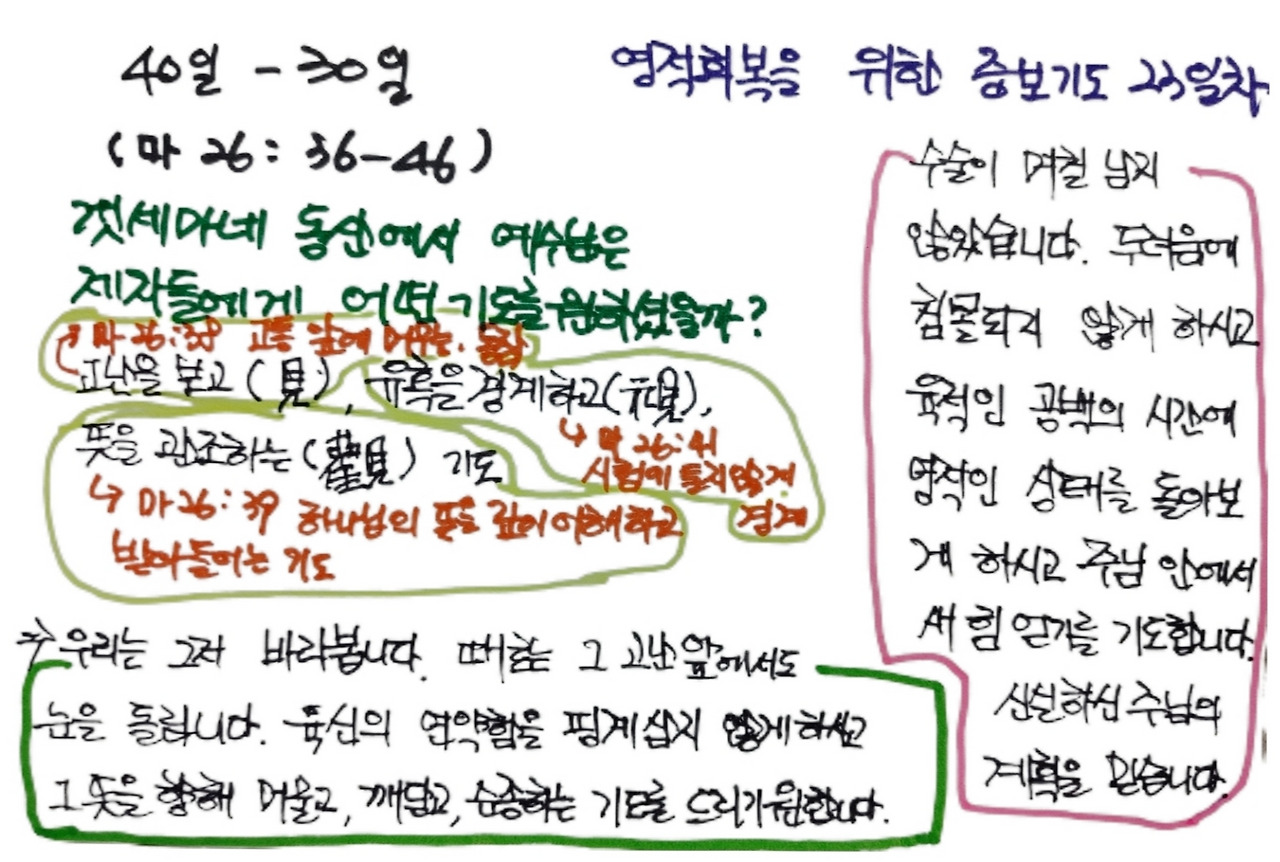 40일 - 30일
(마 26: 36-46)
겟세마네 동산에서 예수님은
제자들에게 어떤 기도를 원하셨을까?
마 26:38 고통 앞에 머무는. 동참
고난을 보고 (見), 유혹을 경계하고(視),
↳ 마 26:41
시험에 들지 않게
경계
뜻을 관조하는 (觀) 기도
↳ 마 26: 39 하나님의 뜻을 깊이 이해하고
받아들이는 기도
우리는 그저 바라봅니다. 때로는 그 고난 앞에서도
눈을 돌립니다. 육신의 연약함을 핑계삼지 않게 하시고
그 뜻을 향해 머물고, 깨닫고, 순종하는 기도를 드리기 원합니다.
영적회복을 위한 중보기도 23일차
수술이 며칠 남지
않았습니다. 두려움에
침몰되지 않게 하시고
육적인 공백의 시간에
영적인 상태를 돌아보
게 하시고 주님 안에서
새 힘 얻기를 기도합니다.
신실하신 주님의
계획을 믿습니다.